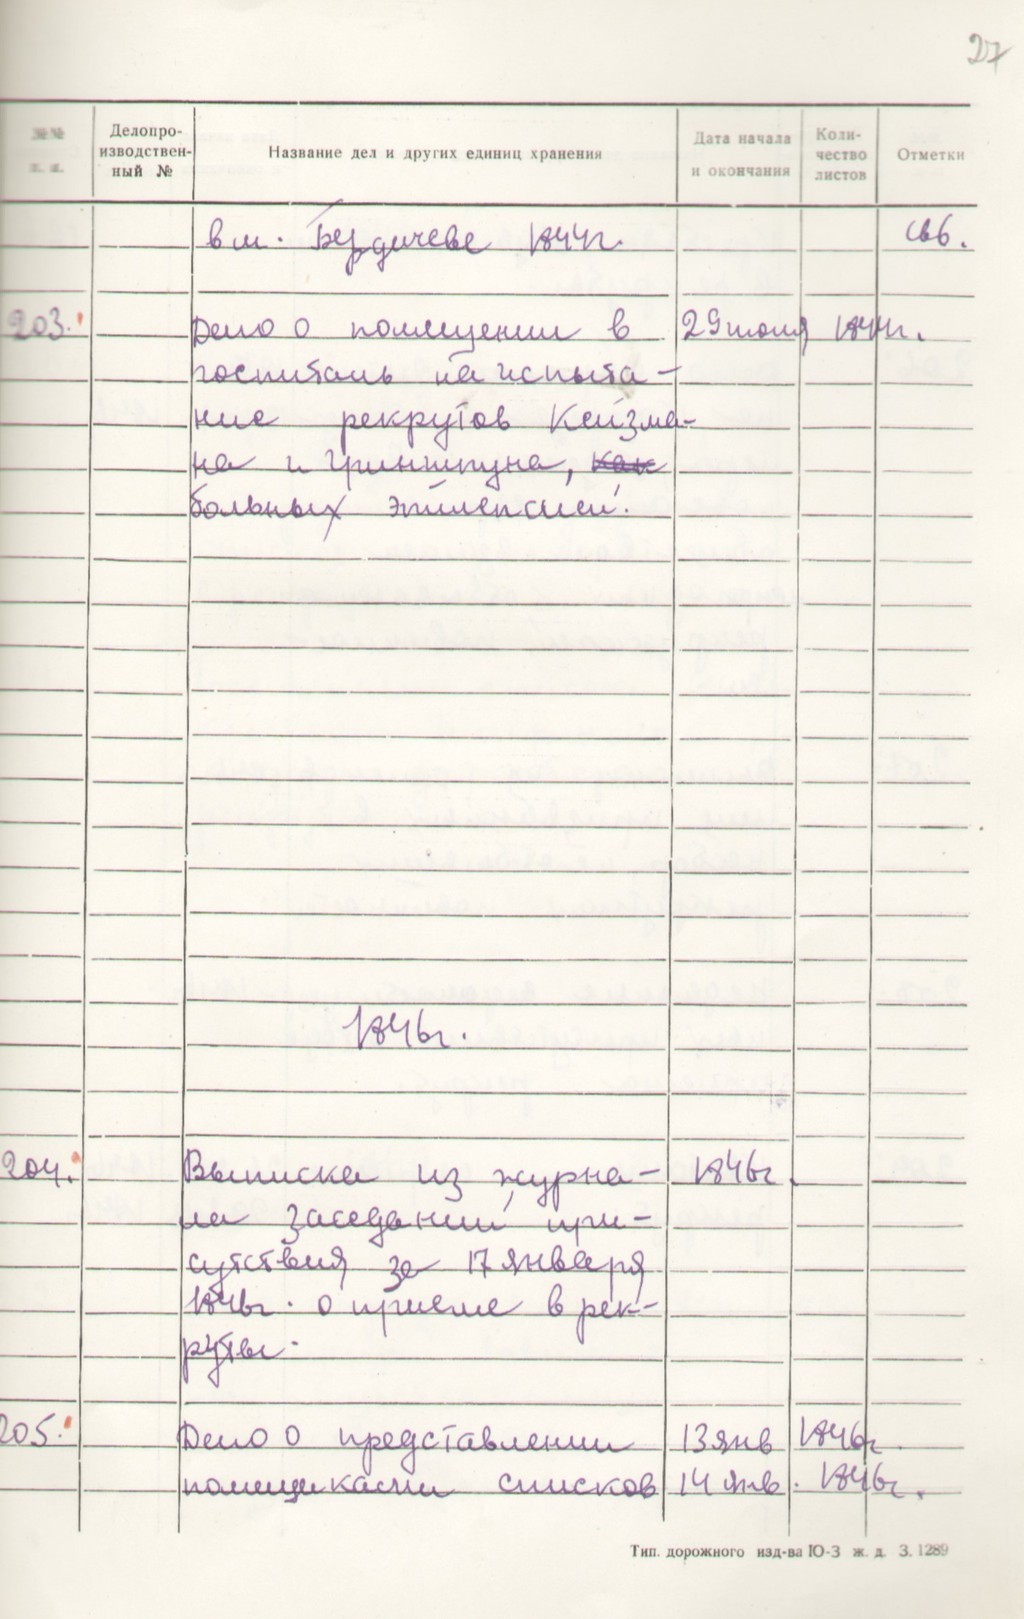 27
№№ п. п.
Делопро-
изводствен-
ный №
Название дел и других единиц хранения
Дата начала
и окончания
Коли-
чество
листов
Отметки
в м. Бердичеве 1844г. св6.
203. Дело о помещении в 29 июля 1844г.
госпиталь на испыта-
ние рекрутов Кейзма-
на и Гриншпуна, как
больных эпилепсией.
1846г.
204. Выписка из журна- 1846г.
ла заседаний при-
сутствия за 17 января
1846г. о приеме в рек-
руты.
205. Дело о представлении 13 янв 1846г.
помещиками списков 14 янв. 1846г.
Тип. дорожного изд-ва Ю-З ж. д. З. 1289